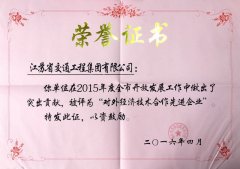 荣誉证书
江苏省交通工程集团有限公司：
你单位在2015年度全市开放发展工作中做出了
突出贡献，被评为“对外经济技术合作先进企业”
特发此证，以资鼓励。
二〇一六年四月